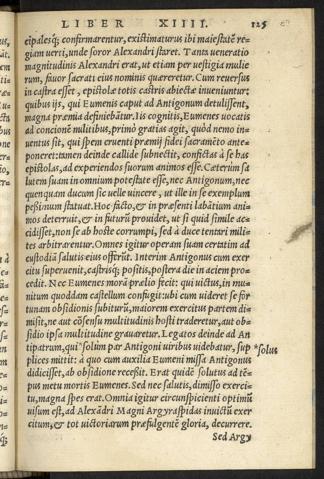 LIBER XIIII. 125
cipalesq́; confirmarentur, existimaturus ibi maiestatē re=
giam uerti, unde soror Alexandri staret. Tanta ueneratio
magnitudinis Alexandri erat, ut etiam per uestigia mulie
rum, fauor sacrati eius nominis quæreretur. Cum reuersus
in castra esset, epistolæ totis castris abiectæ inueniuntur:
quibus ijs, qui Eumenis caput ad Antigonum detulissent,
magna præmia definiebātur. Iis cognitis, Eumenes uocatis
ad concionē militibus, primò gratias agit, quòd nemo in=
uentus sit, qui spem cruenti præmij fidei sacramēto ante=
poneret: tamen deinde callide subnectit, confictas à se has
epistolas, ad experiendos suorum animos esse. Cæterùm sa
lutem suam in omnium potestate esse, nec Antigonum, nec
quenquam ducum sic uelle uincere, ut ille in se exemplum
pessimum statuat. Hoc facto, & in præsenti labātium ani=
mos deterruit, & in futurū prouidet, ut si quid simile ac=
cidisset, non se ab hoste corrumpi, sed à duce tentari mili=
tes arbitrarentur. Omnes igitur operam suam certatim ad
custodiā salutis eius offerūt. Interim Antigonus cum exer
citu superuenit, castrisq́; positis, postera die in aciem pro=
cedit. Nec Eumenes morā prælio fecit: qui uictus, in mu=
nitum quoddam castellum confugit: ubi cum uideret se for
tunam obsidionis subiturū, maiorem exercitus partem di=
misit, ne aut cōsensu multitudinis hosti traderetur, aut ob=
sidio ipsa multitudine grauaretur. Legatos deinde ad An
tipatrum, qui *solùm par Antigoni uiribus uidebatur, sup *solus
plices mittit: à quo cum auxilia Eumeni missa Antigonus
didicisset, ab obsidione recessit. Erat quidē solutus ad tē=
pus metu mortis Eumenes. Sed nec salutis, dimisso exerci=
tu, magna spes erat. Omnia igitur circunspicienti optimū
uisum est, ad Alexādri Magni Argyraspidas inuictū exer
citum, & tot uictoriarum præfulgentē gloria, decurrere.
Sed Argy